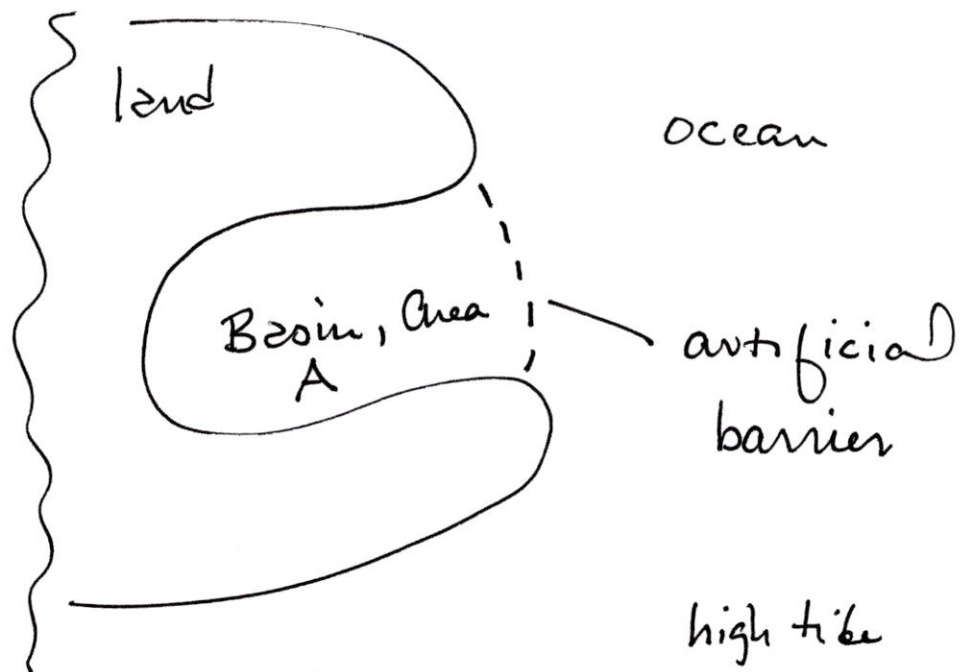 land
ocean
Basin, Area
A
artificial
barrier
high tide